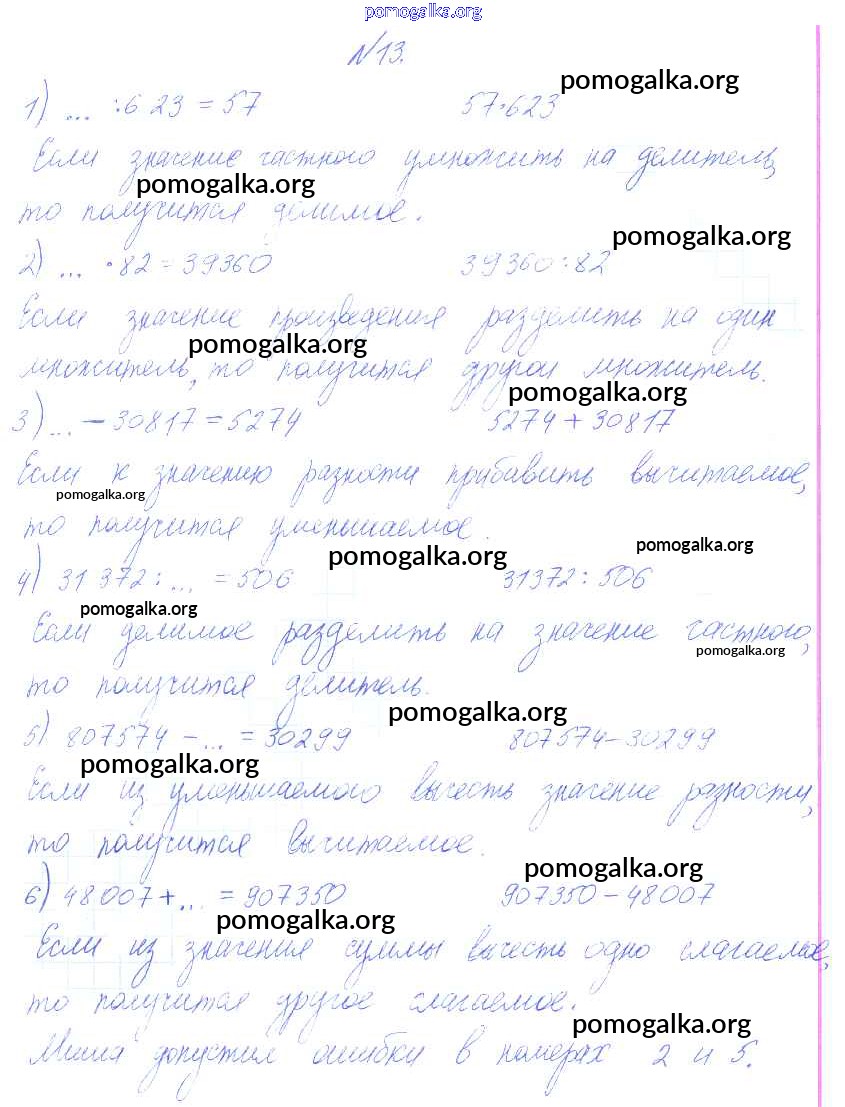 pomogalka.org
№13.
pomogalka.org
1) ... :623 = 57 57·623
Если значение частного умножить на делитель,
pomogalka.org
то получится делимое.
pomogalka.org
2) ... ·82 = 39360 39360:82
Если значение произведения разделить на один
pomogalka.org
множитель, то получится другой множитель.
pomogalka.org
3) ... - 30817 = 5274 5274 + 30817
Если к значению разности прибавить вычитаемое,
pomogalka.org
то получится уменьшаемое.
pomogalka.org pomogalka.org
4) 31372: ... = 506 31372: 506
pomogalka.org
Если делимое разделить на значение частного,
pomogalka.org
то получится делитель.
pomogalka.org
5) 807574 - ... = 30299 807574-30299
pomogalka.org
Если из уменьшаемого вычесть значение разности,
то получится вычитаемое.
pomogalka.org
6) 48007+ ... = 907350 907350-48007
pomogalka.org
Если из значения суммы вычесть одно слагаемое,
то получится другое слагаемое.
pomogalka.org
Миша допустил ошибки в номерах 2 и 5.